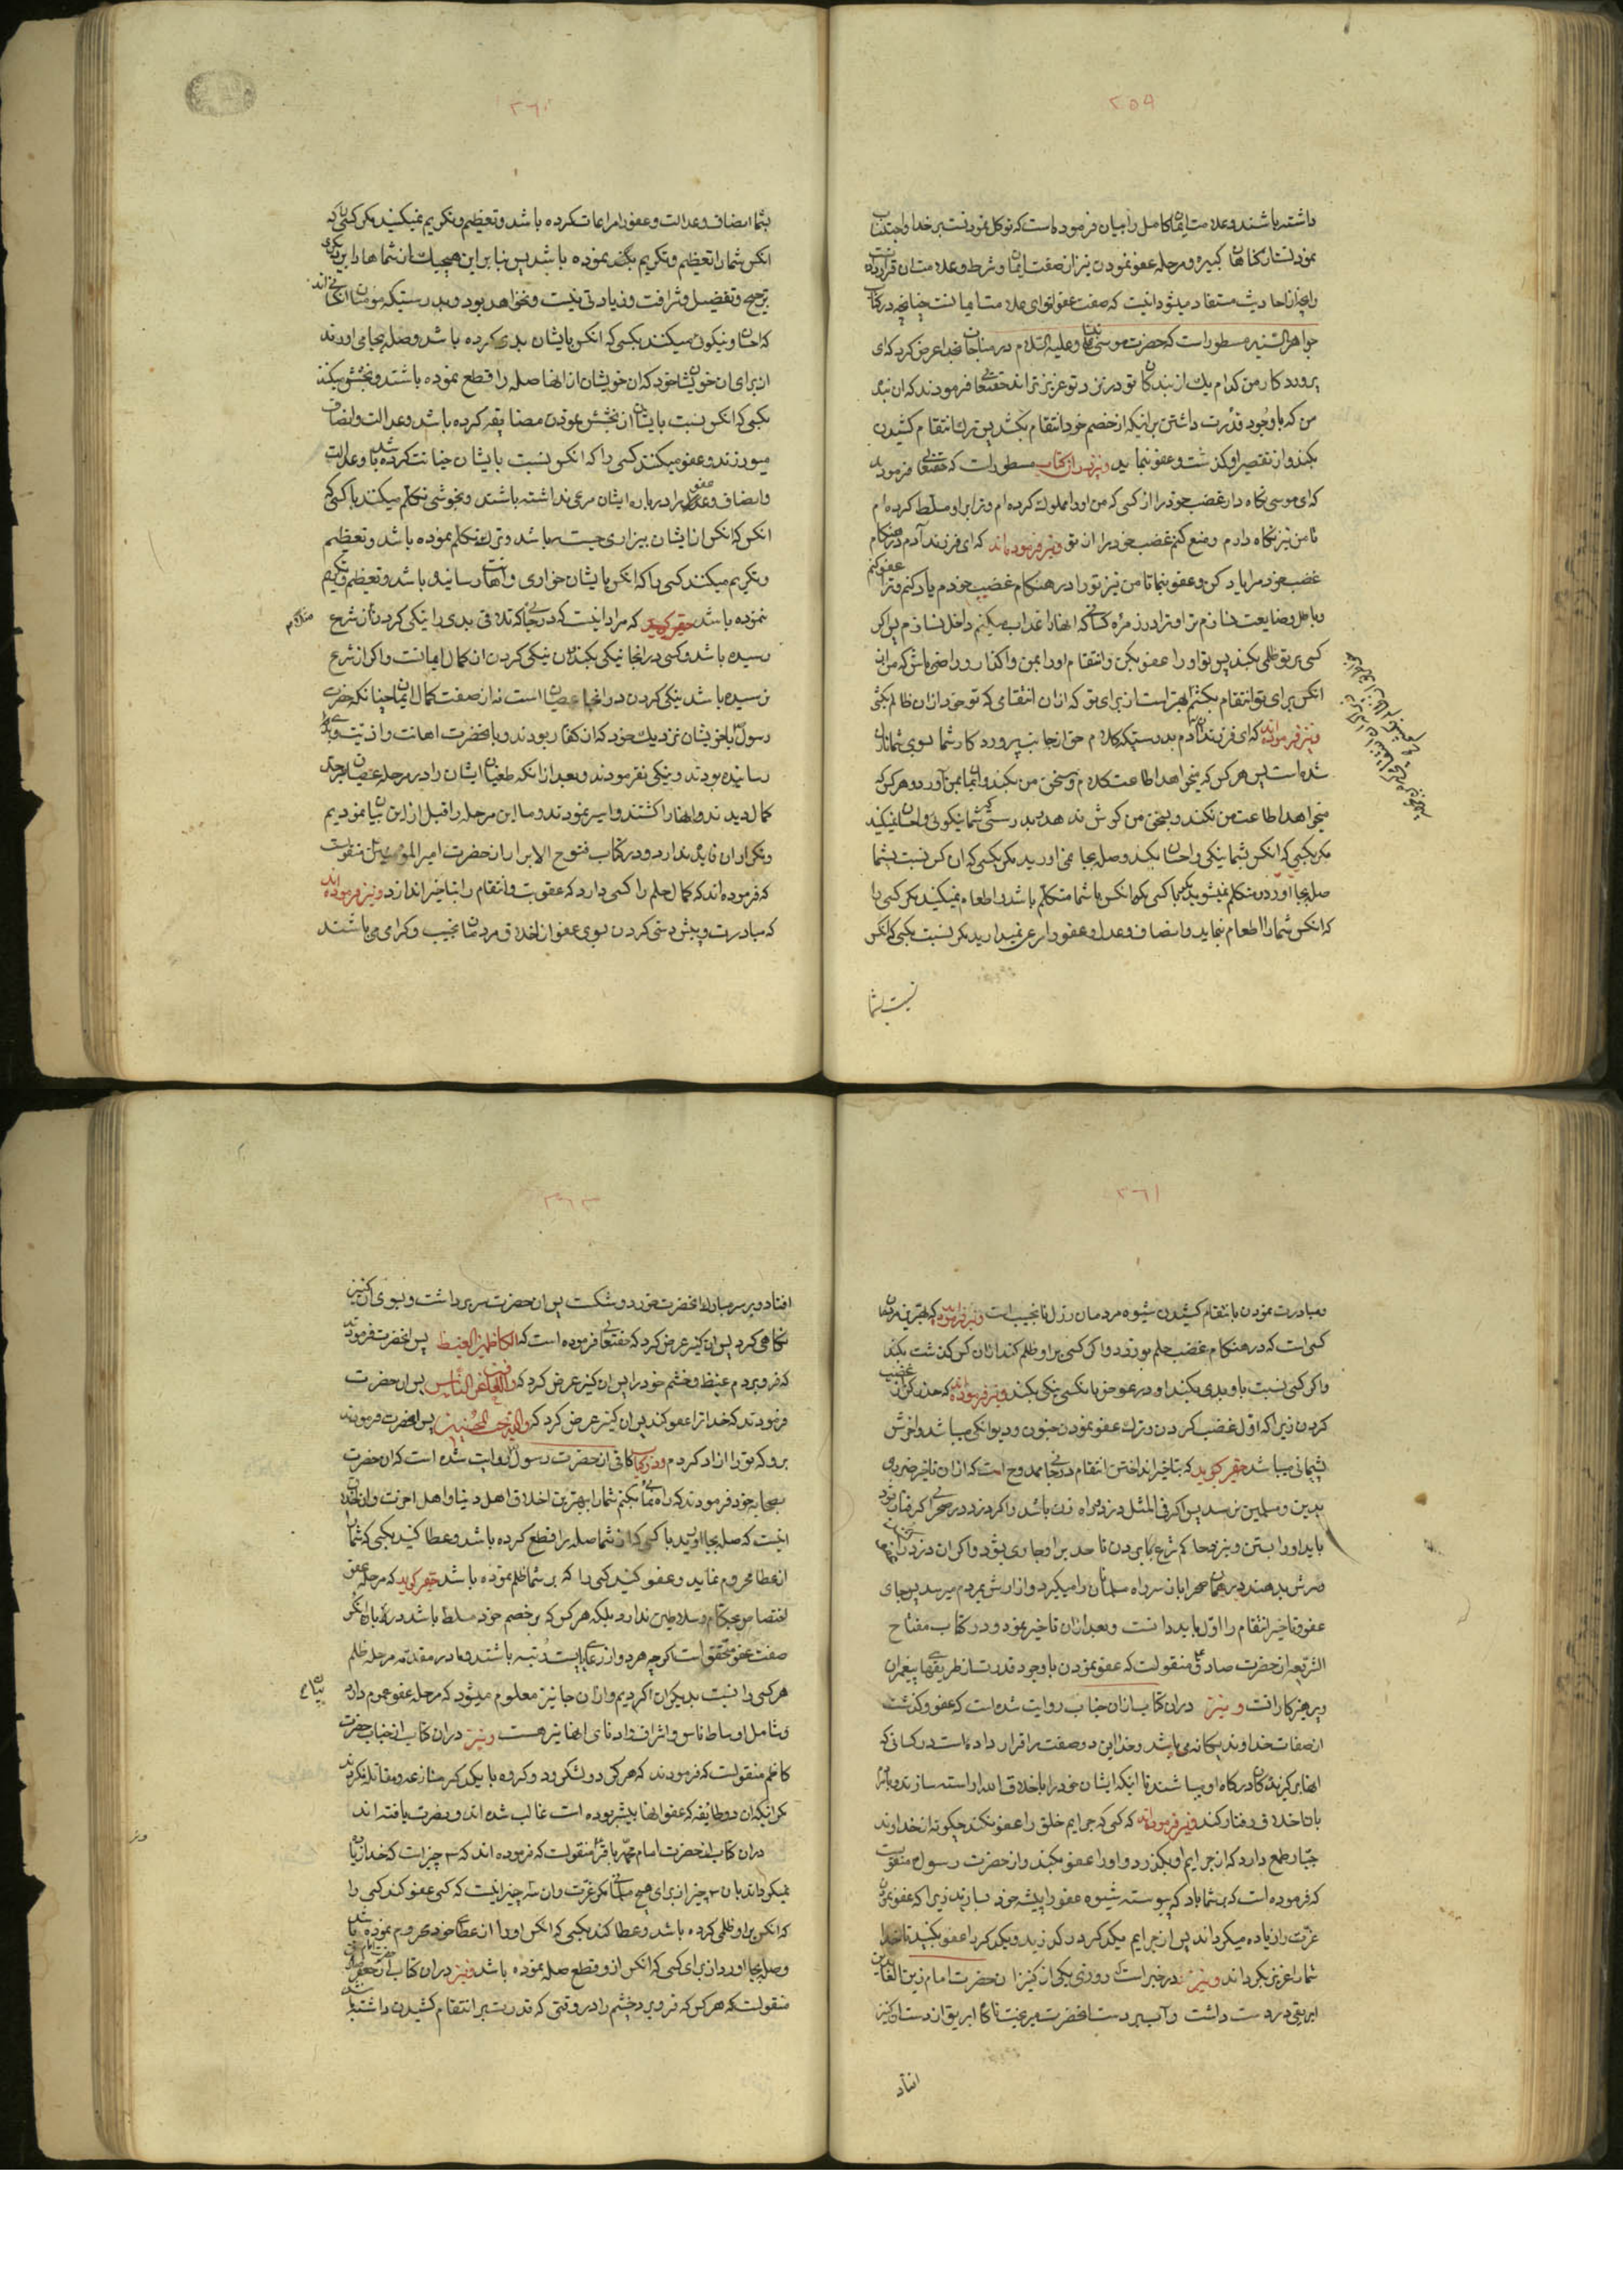 ٢٥٩
داشته باشند و علامت ایمان کامل را بیان فرموده است که توکل نمودنست بر خدا و اجتناب
نمودنست از گناهان کبیره و مرحله عفو نمودن نیز از صفت ایمان و شرط و علامت آن قرار داده
و آنچه از احادیث مستفاد میشود آنست که صفت عفو اقوای علامت ایمانست چنانچه در کتاب
جواهر السنیه مسطور است که حضرت موسی علیه السلام در مناجات بخدا عرض کرد که ای
پروردکار من کدام یک از بندکان تو در نزد تو عزیزتراند حقتعالی فرمودند که آن بنده
من که با وجود قدرت داشتن بر اینکه از خصم خود انتقام بکشد پس ترک انتقام کشیدن
بکند و از تقصیر او کذشت و عفو نماید و نیز در آن کتاب مسطور است که حقتعالی فرمودند
که ای موسی نکاه دار غضب خود را از کسی که من او را مملوک کرده ام و ترا بر او مسلط کرده ام
تا من نیز نکاه دارم و منع کنم غضب خود را از تو و نیز فرموده اند که ای فرزند آدم در هنکام
غضب خود مرا یاد کن و عفو بنما تا من نیز تو را در هنکام غضب خودم یاد کنم و ترا عفو کنم
و باطل و ضایعت نسازم ترا و ترا در زمره کسانی که آنها را عذاب میکنم داخل نسازم پس اکر
کسی بر تو ظلمی بکند پس تو او را عفو بکن و انتقام او را بمن واکذار و راضی باش که من از
آنکس برای تو انتقام بکشم بهتر است از برای تو که از آن انتقامی که تو خود از آن ظالم بکشی
و نیز فرموده اند که ای فرزندان آدم بدرستیکه کلام حق از جانب پروردکار شما بسوی شما نازل
شده است پس هر کس که میخواهد اطاعت کلام و سخن من بکند و ایمان بمن آورد و هر کس که
میخواهد اطاعت من نکند و بسخن من کوش ندهد بدرستی که شما نیکوئی و احسان نمیکنید
مکر بکسی که آنکس بشما نیکی و احسان بکند و صله بجا نمی آورید مکر بکسی که آن کس نسبت بشما
صله بجا آورد و متکلم نمیشوید مکر با کسی که آنکس با شما متکلم باشد و اطعام نمیکنید مکر کسی را
که آنکس شما را اطعام نماید و انصاف و عدل و عفو را مرعی نمیدارید مکر نسبت بکسی که آنکس
نسبت بشما
٢٦٠
بشما انصاف و عدالت و عفو را مراعات کرده باشد و تعظیم و تکریم نمیکنید مکر کسی را که
آنکس شما را تعظیم و تکریم بکند نموده باشد پس بنا بر این هیچیک از شما ها را بر دیکری
ترجیح و تفضیل و شرافت و زیادتی نیست و نخواهد بود و بدرستیکه مؤمنان آن کسانی اند
که احسان و نیکوئی میکنند بکسی که آنکس بایشان بدی کرده باشد و صله بجا می آورند
از برای آن خویشان خود که آن خویشان از آنها صله را قطع نموده باشند و بخشش میکنند
بکسی که آنکس نسبت بایشان از بخشش نمودن مضایقه کرده باشد و عدالت و انصاف
میورزند و عفو میکنند کسی را که آنکس نسبت بایشان خیانت کرده باشد و عدالت
و انصاف و عفو را درباره ایشان مرعی نداشته باشند و بخوشی تکلم میکنند با کسی که
آنکس که آنکس از ایشان بیزاری جسته باشد و ترک تکلم نموده باشد و تعظیم
و تکریم میکنند کسی را که آنکس بایشان خواری و اهانت رسانیده باشد و تعظیم و تکریم
ننموده باشد حقیر کوید که مراد اینست که در جائی که تلافی بدی را نیکی کردن از شرع
رسیده باشد و کسی در آنجا نیکی بکند آن نیکی کردن از کمال ایمانست و اکر از شرع
نرسیده باشد نیکی کردن در آنجا عصیان است نه از صفت کمال ایمان چنانکه حضرت
رسول با خویشان نزدیک خود که از کفار بودند و بآنحضرت اهانت و اذیت
رسانیده بودند و نیکی نفرمودند و بعد از آنکه طغیان ایشان را در مرحله عصیان بر حد
کمال دیدند و آنها را کشتند و اسیر نمودند و ما این مرحله را قبل از این بیان نمودیم
و تکرار آن فایده ندارد و در کتاب فتوح الابرار از حضرت امیر المؤمنین منقولست
که فرموده اند که کمال حلم را کسی دارد که عقوبت و انتقام را بتاخیر اندازد و نیز فرموده اند
که مبادرت و پیش دستی کردن بسوی عفو از اخلاق مردمان نجیب و کرامی می باشند
٢٦١
و مبادرت نمودن بانتقام کشیدن شیوه مردمان رذل نانجیب است و نیز فرموده اند که بهترین مردمان
کسی است که در هنکام غضب حلم بورزد و اکر کسی بر او ظلم کند از آن کس کذشت بکند
و اکر کسی نسبت باو بدی بکند او در عوض با آنکس نیکی بکند و نیز فرموده اند که حذر کن از غضب
کردن زیرا که اول غضب کردن و ترک عفو نمودن جنون و دیوانکی میباشد و آخرش
پشیمانی میباشد حقیر کوید که بتاخیر انداختن انتقام در جائی ممدوح است که از آن تاخیر ضرری
بدین و مسلمین نرسد پس اکر فی المثل دزدی راه زن باشد و اکر دزد در صحرا کرفتار شود
باید او را بستن و بنزد حاکم شرع بردن تا حد بر او جاری شود و اکر آن دزد را
فرش بدهند در همان صحرا باز سر راه مسلمانان را میکیرد و آزارش بمردم میرسد پس جای
عفو و تاخیر انتقام را اول باید دانست و بعد از آن تاخیر نمود و در کتاب مفتاح
الشریعه از حضرت صادق منقولست که عفو نمودن با وجود قدرت از طریقهای پیغمبران
و پرهیزکارانست و نیز در آن کتاب از آن جناب روایت شده است که عفو و کذشت
از صفات خداوند یکانه می باشد و خدا این دو صفت را قرار داده است در کسانی که
آنها برکزیدکان درکاه او میباشند تا اینکه ایشان خود را باخلاق الله آراسته سازند و با مردم
باین اخلاق رفتار کنند و نیز فرموده اند که کسی که جرایم خلق را عفو نکند چکونه از خداوند
جبار طمع دارد که از جرایم او بکذرد و او را عفو بکند و از حضرت رسول منقولست
که فرموده است که بر شما باد که پیوسته شیوه عفو را پیشه خود سازید زیرا که عفو نمودن
عزت را زیاده میکرداند پس از جرایم یکدیکر درکذرید و یکدیکر را عفو بکنید تا خدا
شما را عزیز بکرداند و نیز در خبر است که روزی یکی از کنیزان حضرت امام زین العابدین
ابریقی در دست داشت و آب بر دست آنحضرت میریخت ناکاه ابریق از دست آن کنیز
افتاد
افتاد و بر سر مبارک آنحضرت خورد و شکست پس آن حضرت سر برداشت و بسوی آن کنیز
نکاهی کرد پس آن کنیز عرض کرد که حقتعالی فرموده است که الکاظمین الغیظ پس آنحضرت فرمودند
که فرو بردم غیظ و خشم خود را پس آن کنیز عرض کرد که والعافین عن الناس پس آن حضرت
فرمودند که خدا ترا عفو کند پس آن کنیز عرض کرد که والله یحب المحسنین پس آنحضرت فرمودند
برو که تو را آزاد کردم و در کتاب کافی از حضرت رسول روایت شده است که آن حضرت
بصحابه خود فرمودند که راه نمائی بکنم شما را ببهترین اخلاق اهل دنیا و اهل آخرت و آن اخلاق
اینست که صله بجا آورید با کسی که از شما صله را قطع کرده باشد و عطا کنید بکسی که شما را
از عطا محروم نماید و عفو کنید کسی را که بر شما ظلم نموده باشد حقیر کوید که مرحله عفو
اختصاص بحکام و سلاطین ندارد بلکه هر کس که بر خصم خود مسلط باشد درباره آنکس
صفت عفو متحقق است کرچه هر دو از رعایای پست رتبه باشند و ما در مقدمه مرحله ظلم
هر کسی را نسبت بدیکران ذکر کردیم و از آن جا نیز معلوم میشود که مرحله عفو عموم دارد
و شامل اوساط ناس و اشراف و ادنای آنها نیز هست و نیز در آن کتاب از جناب حضرت
کاظم منقولست که فرمودند که هر کز دو لشکر و دو کروه با یکدیکر منازعه و مقاتله نکردند
مکر اینکه آن دو طایفه که عفو آنها بیشتر بوده است غالب شده اند و نصرت یافته اند
در آن کتاب از حضرت امام محمد باقر منقولست که فرموده اند که سه چیز است که خدا زیاد
نمیکرداند بآن سه چیز از برای هیچ مسلمانی مکر عزت و آن سه چیز اینست که کسی عفو کند کسی را
که آنکس بر او ظلمی کرده باشد و عطا کند بکسی که آنکس او را از عطای خود محروم نموده باشد
وصله بجا آورد از برای کسی که آنکس از و قطع صله نموده باشد و نیز در آن کتاب از حضرت امام جعفر صادق
منقولست که هر کس که فرو برد خشم را در وقتی که قدرت بر انتقام کشیدن داشته باشد